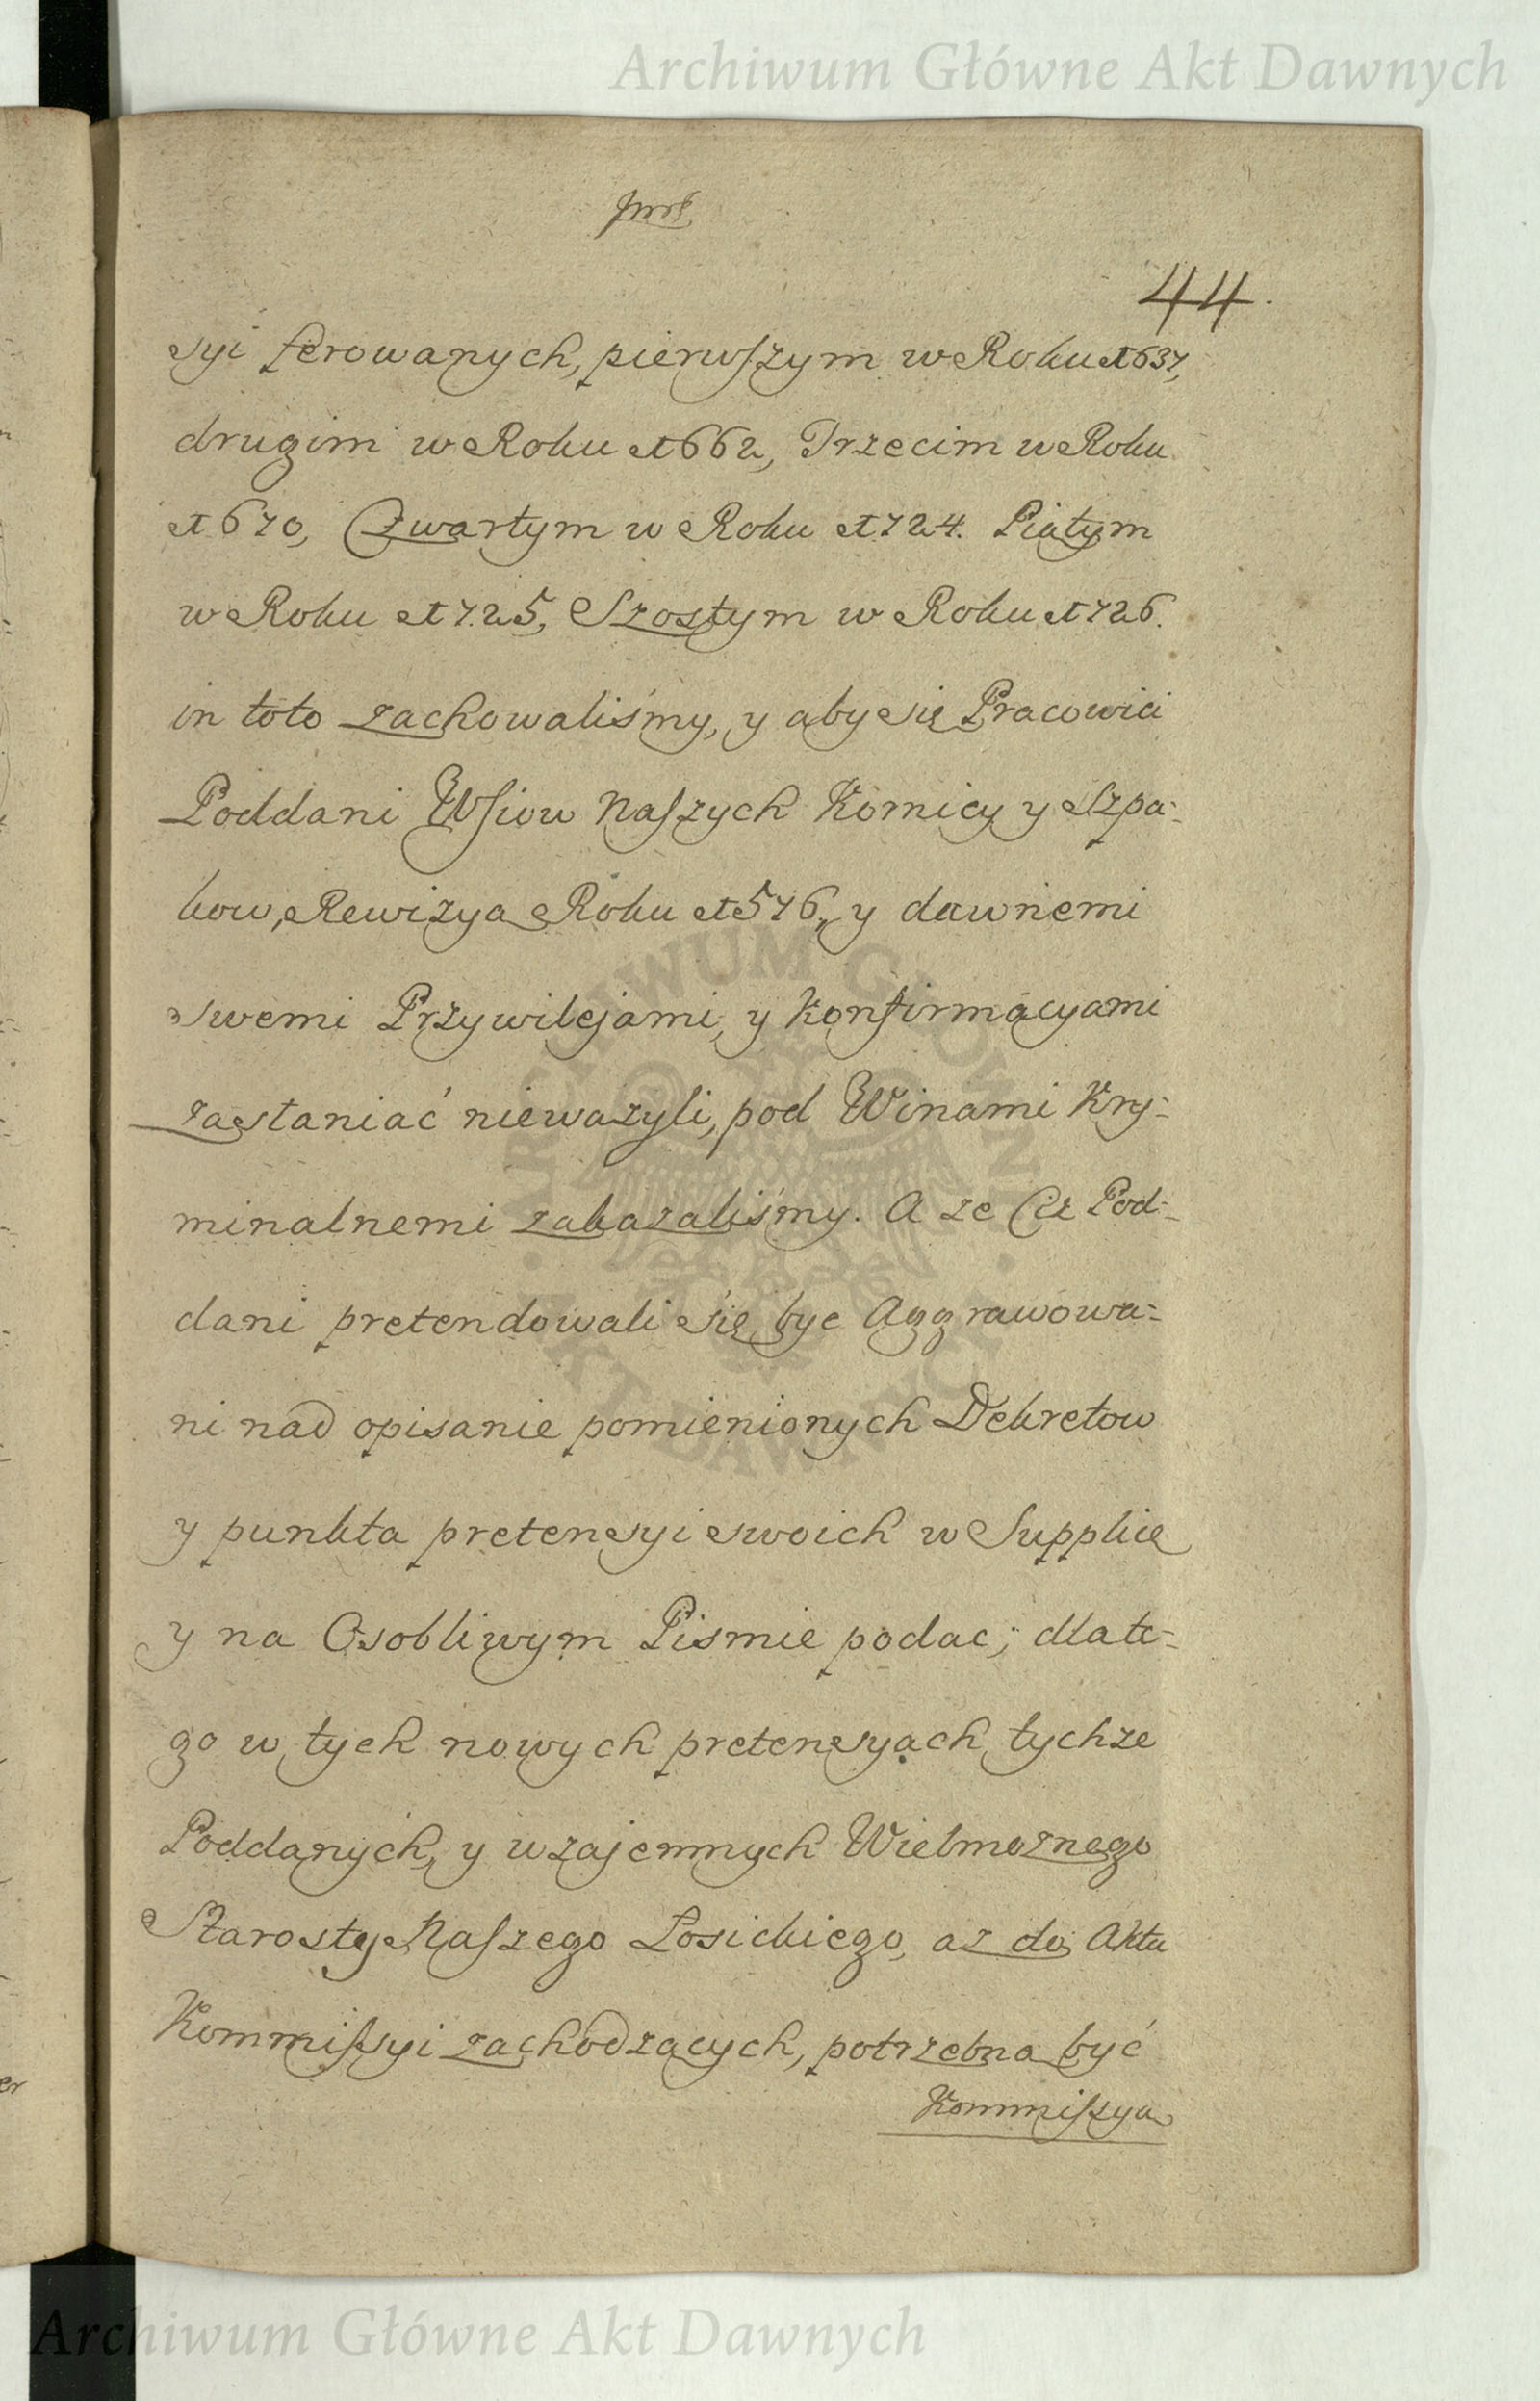 Archiwum Główne Akt Dawnych
44.
syi ferowanych, pierwszym w Roku 1637,
drugim w Roku 1662, Trzecim w Roku
1670, Czwartym w Roku 1724. Piątym
w Roku 1725, Szostym w Roku 1726.
in toto zachowaliśmy, y aby się Pracowici
Poddani Wsiow Naszych Kornicy y Szpa-
kow, Rewizyą Roku 1576, y dawnemi
swemi Przywilejami, y Konfirmacyami
zastaniać nieważyli, pod Winami Kry-
minalnemi zakazaliśmy. A ze Ciż Pod-
dani pretendowali się bye Aggrawowa-
ni nad opisanie pomienionych Dekretow
y punkta pretensyi swoich w Supplice
y na Osobliwym Pismie podac; dlate-
go w tych nowych pretensyach tychze
Poddanych, y wzajemnych Wielmoznego
Starosty Naszego Łosickiego, az do Aktu
Kommissyi zachodzących, potrzebna być
Kommissya
ARCHIWUM GŁÓWNE
AKT DAWNYCH
Archiwum Główne Akt Dawnych